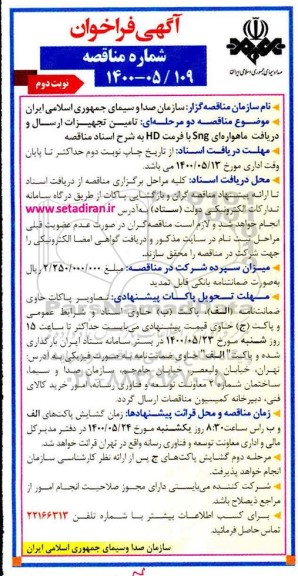 آگهی فراخوان
شماره مناقصه
۱۴۰۰-۰۵/۱۰۹
نوبت دوم
صدا و سیمای جمهوری اسلامی ایران
نام سازمان مناقصه‌گزار: سازمان صدا و سیمای جمهوری اسلامی ایران
موضوع مناقصه دو مرحله‌ای: تامین تجهیزات ارسال و
دریافت ماهواره‌ای Sng با فرمت HD به شرح اسناد مناقصه
مهلت دریافت اسناد: از تاریخ چاپ نوبت دوم حداکثر تا پایان
وقت اداری مورخ ۱۴۰۰/۰۵/۱۳ می باشد.
محل دریافت اسناد: کلیه مراحل برگزاری مناقصه از دریافت اسناد
تا ارائه پیشنهاد مناقصه گران و بازگشایی پاکات از طریق درگاه سامانه
تدارکات الکترونیکی دولت (ستاد) به آدرس www.setadiran.ir
انجام خواهد شد و لازم است مناقصه‌گران در صورت عدم عضویت قبلی
مراحل ثبت نام در سایت مذکور و دریافت گواهی امضا الکترونیکی را
جهت شرکت در مناقصه را محقق سازند.
میزان سپرده شرکت در مناقصه: مبلغ ۲/۲۵۰/۰۰۰/۰۰۰ ریال
به‌صورت ضمانتنامه بانکی قابل تمدید
مهلت تحویل پاکات پیشنهادی: تصاویر پاکات حاوی
ضمانت‌نامه (الف)، پاکت (ب) حاوی اسناد و شرایط عمومی
و پاکت (ج) حاوی قیمت پیشنهادی می‌بایست حداکثر تا ساعت ۱۵
روز شنبه مورخ ۱۴۰۰/۰۵/۲۳ در بستر سامانه ستاد ایران بارگذاری
شده و پاکت "الف" حاوی ضمانت‌نامه به‌صورت فیزیکی به آدرس:
تهران، خیابان ولیعصر، خیابان جام‌جم، سازمان صدا و سیما،
ساختمان شماره ۲ معاونت توسعه و فناوری رسانه، امور خرید کالای
فنی، دبیرخانه کمیسیون مناقصات ارسال گردد.
زمان مناقصه و محل قرائت پیشنهادها: زمان گشایش پاکت‌های الف
و ب راس ساعت ۸:۳۰ روز یکشنبه مورخ ۱۴۰۰/۰۵/۲۴ در دفتر مدیرکل
مالی و اداری معاونت توسعه و فناوری رسانه واقع در تهران قرائت خواهد شد.
مرحله دوم گشایش پاکت‌های ج پس از ارائه نظر کارشناسی سازمان
انجام خواهد پذیرفت.
شرکت کننده می‌بایستی دارای مجوز صلاحیت انجام امور از
مراجع ذیصلاح باشد.
برای کسب اطلاعات بیشتر با شماره تلفن ۲۲۱۶۶۳۱۳
تماس حاصل فرمائید.
سازمان صدا و سیمای جمهوری اسلامی ایران